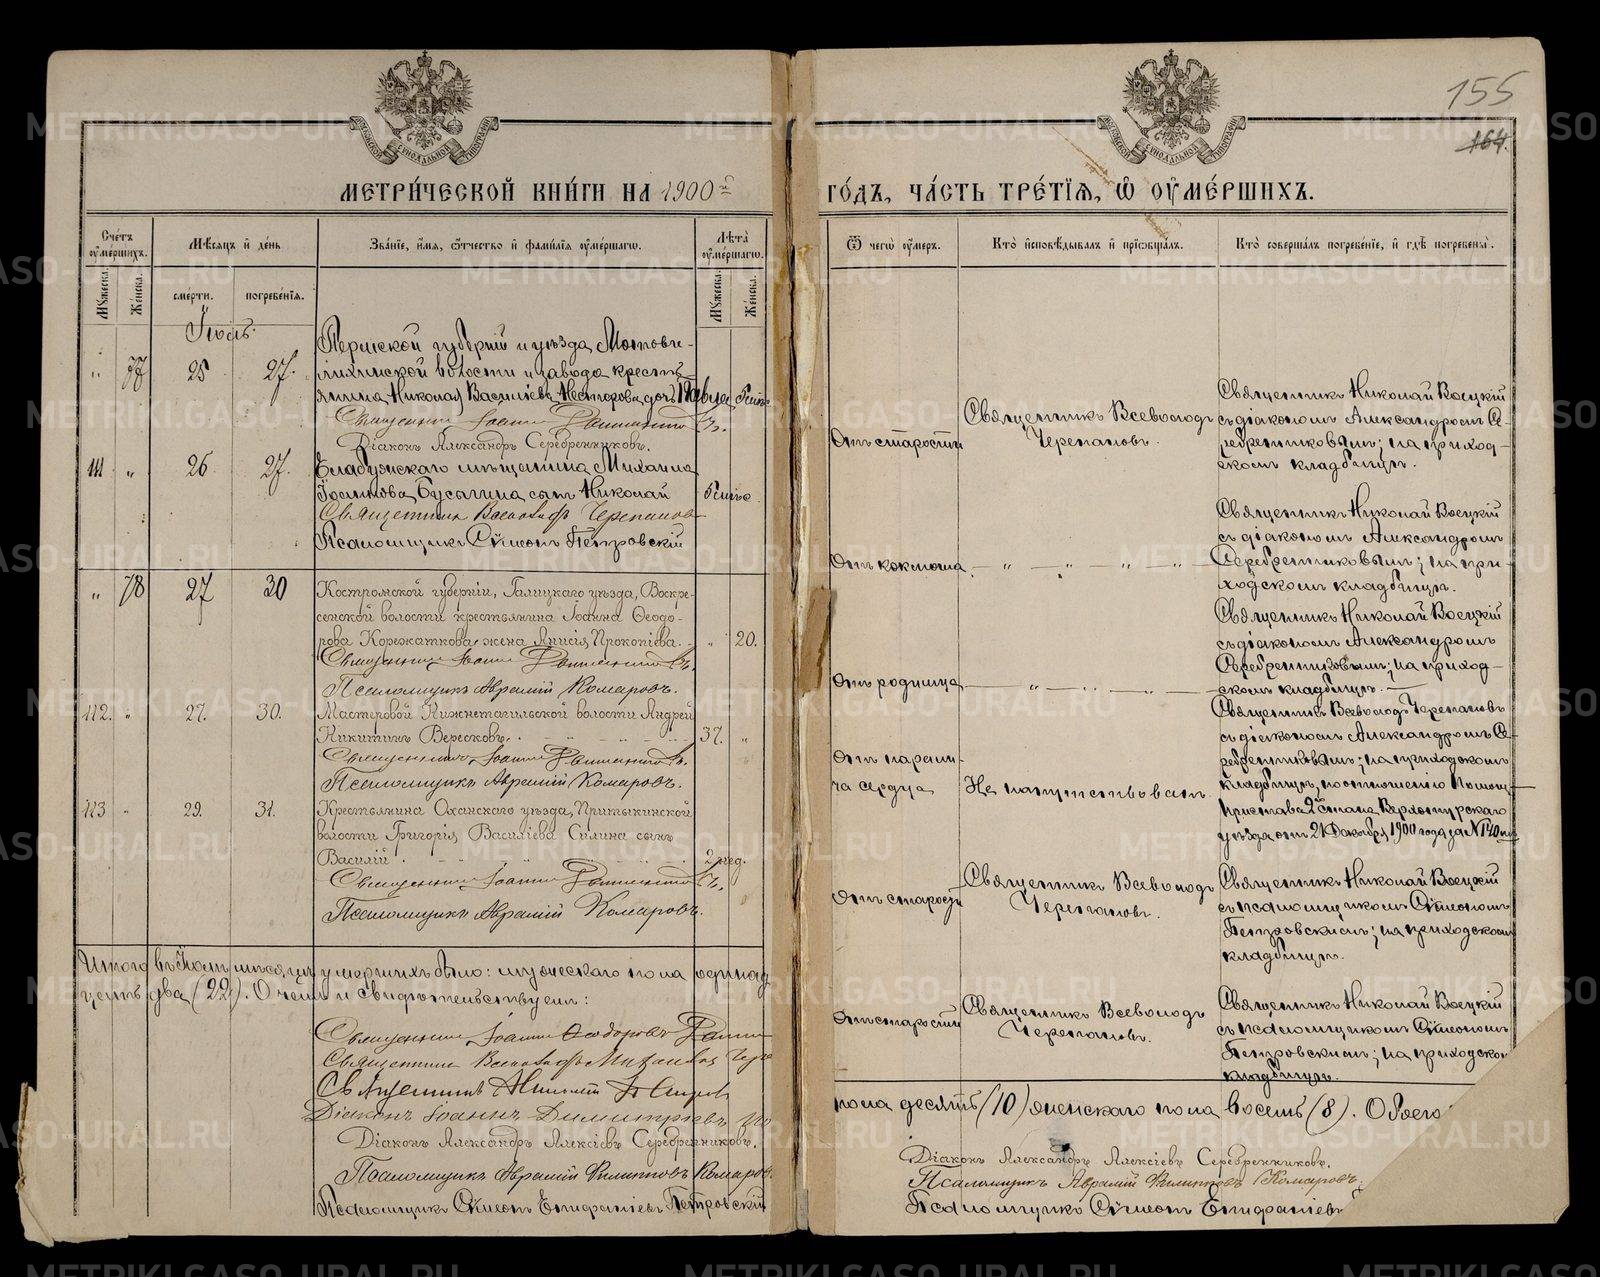 155
164.
МЕТРИ́ЧЕСКОЙ КНИ́ГИ НА 1900й
ГО́ДЪ, ЧА́СТЬ ТРЕ́ТЇѦ, Ѽ ОУМЕ́РШИХЪ.
Счетъ оумершихъ.
Мужеска.
Женска.
Мѣсяцъ и день
смерти.
погребенїѧ.
Званїе, имѧ, ѿчество и фамилїѧ оумершагѡ.
Лѣта оумершагѡ.
Мужеска.
Женска.
Ѿ чегѡ оумеръ.
Кто исповѣдывалъ и прїобщалъ.
Кто совершалъ погребенїе, и гдѣ погребены.
Іюль.
" 77 25 27.
Пермской губерніи и уѣзда Мотови-
лихинской волости и завода кресть-
янина Николая Васильева Нестерова дочь
Священникъ Іоаннъ
Діаконъ Александръ Серебренниковъ.
Отъ старости
Священникъ Всеволодъ
Черепановъ.
Священникъ Николай
съ діакономъ Александромъ Се-
ребренниковымъ; на приход-
скомъ кладбищѣ.
111 " 26 27.
Елабужскаго мѣщанина Михаила
Іоаннова Бусыгина сынъ Николай
Священникъ Всеволодъ Черепановъ
Псаломщикъ Сѵмеонъ Петровскій
Отъ коклюша
Священникъ Николай
съ діакономъ Александромъ
Серебренниковымъ; на при-
ходскомъ кладбищѣ.
" 78 27 30
Костромской губерніи, Галицкаго уѣзда, Воскре-
сенской волости крестьянина Іоанна Ѳеодо-
рова Корежаткова жена Анисія Прокопіева. " 20.
Священникъ Іоаннъ
Псаломщикъ Аврамій Комаровъ.
Отъ родимца
Священникъ Николай
съ діакономъ Александромъ
Серебренниковымъ; на приход-
скомъ кладбищѣ.
112. " 27. 30.
Мастеровой Нижнетагильской волости Андрей
Никитинъ Вересковъ. 37. "
Священникъ Іоаннъ
Псаломщикъ Аврамій Комаровъ.
Отъ парали-
ча сердца
Не напутствованъ
Священникъ Всеволодъ Черепановъ
съ діакономъ Александромъ Се-
ребренниковымъ; на приходскомъ
кладбищѣ, по отношенію Помощ.
Пристава 2 стана Верхотурскаго
уѣзда отъ 21 Декабря 1900 года за №
113 " 29. 31.
Крестьянина Оханскаго уѣзда, Притыкинской
волости Григорія Васильева Силина сынъ
Василій. 2 нед.
Священникъ Іоаннъ
Псаломщикъ Аврамій Комаровъ.
Отъ старости
Священникъ Всеволодъ
Черепановъ.
Священникъ Николай
съ псаломщикомъ Сѵмеономъ
Петровскимъ; на приходскомъ
кладбищѣ.
Отъ старости
Священникъ Всеволодъ
Черепановъ.
Священникъ Николай
съ псаломщикомъ Сѵмеономъ
Петровскимъ; на приходском
кладбищѣ.
Итого въ Іюлѣ мѣсяцѣ умершихъ было: мужескаго пола
два (22). О чемъ и свидѣтельствуемъ:
пола десять (10) женскаго пола восемь (8). Обоего
Священникъ Іоаннъ Ѳеодоровъ
Священникъ Всеволодъ Михаиловъ
Священникъ Николай
Діаконъ Іоаннъ Димитріевъ
Діаконъ Александръ Алексіевъ Серебренниковъ.
Псаломщикъ Аврамій Филиповъ Комаровъ
Псаломщикъ Сѵмеонъ Епифаніевъ Петровскій
Діаконъ Александръ Алексіевъ Серебренниковъ.
Псаломщикъ Аврамій Филиповъ Комаровъ.
Псаломщикъ Сѵмеонъ Епифаніевъ
METRIKI.GASO-URAL.RU